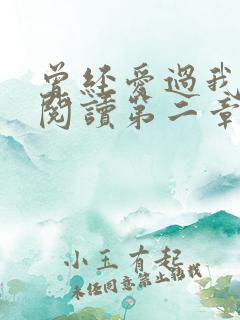 曾經愛過我
閱讀第二章
小玉有起
未經同意禁止轉載